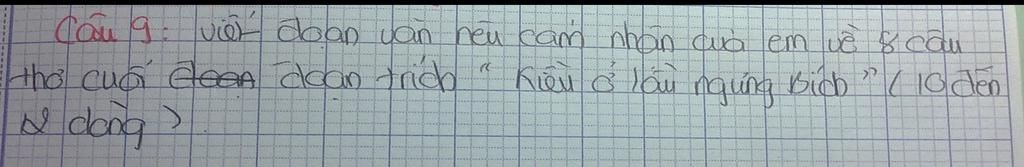 Câu 9: viết đoạn văn nêu cảm nhận của em về 8 câu
thơ cuối đoạn trích " Kiều ở lầu ngưng bích" ( 10 đến
dòng )